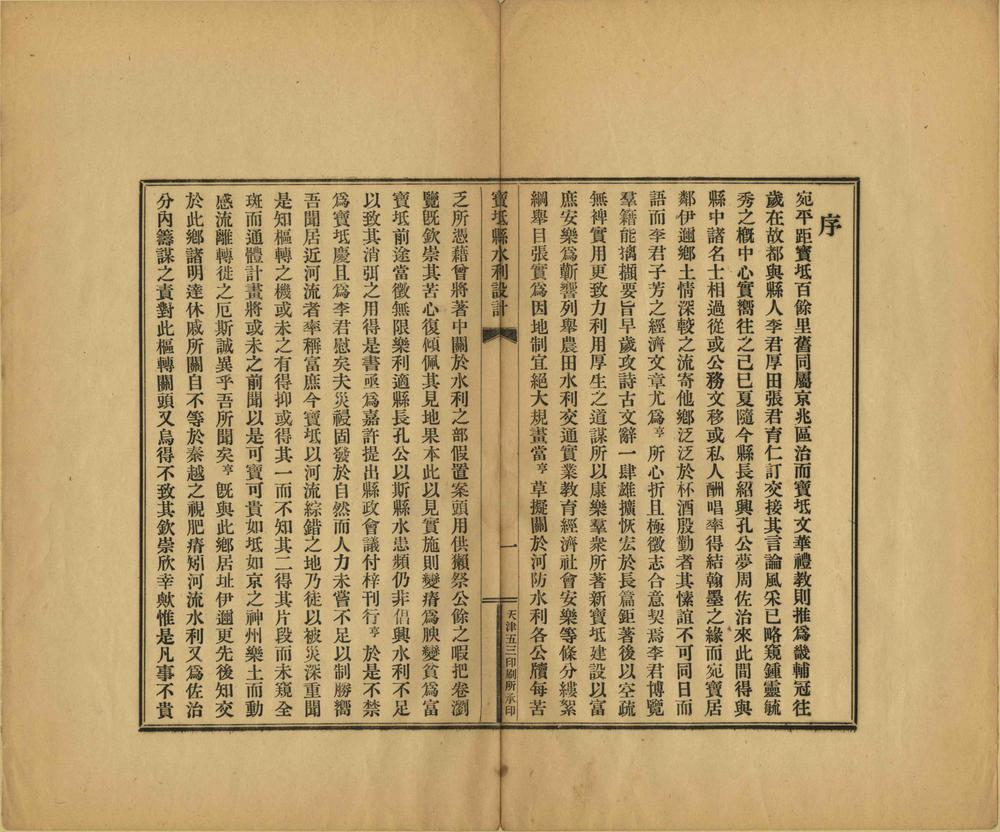 序
宛平距寶坻百餘里舊同屬京兆區治而寶坻文華禮教則推爲畿輔冠往
歲在故都與縣人李君厚田張君育仁訂交接其言論風采已略窺鍾靈毓
秀之概中心實嚮往之己巳夏隨今縣長紹興孔公夢周佐治來此間得與
縣中諸名士相過從或公務文移或私人酬唱率得結翰墨之緣而宛寶居
鄰伊邇鄉土情深較之流寄他鄉泛泛於杯酒殷勤者其愫誼不可同日而
語而李君子芳之經濟文章尤爲亨所心折且極徵志合意契焉李君博覽
羣籍能摛擷要旨早歲攻詩古文辭一肆雄擴恢宏於長篇鉅著後以空疏
無裨實用更致力利用厚生之道謀所以康樂羣衆所著新寶坻建設以富
庶安樂爲蘄嚮列舉農田水利交通實業教育經濟社會安樂等條分縷絮
綱舉目張實爲因地制宜絕大規畫當亨草擬關於河防水利各公牘每苦
寶坻縣水利設計
一
天津五三印刷所承印
乏所憑藉曾將著中關於水利之部假置案頭用供獺祭公餘之暇把卷瀏
覽旣欽崇其苦心復傾佩其見地果本此以見實施則變瘠爲腴變貧爲富
寶坻前途當徵無限樂利適縣長孔公以斯縣水患頻仍非倡興水利不足
以致其消弭之用得是書亟爲嘉許提出縣政會議付梓刊行亨於是不禁
爲寶坻慶且爲李君慰矣夫災祲固發於自然而人力未嘗不足以制勝嚮
吾聞居近河流者率稱富庶今寶坻以河流綜錯之地乃徒以被災深重聞
是知樞轉之機或未之有得抑或得其一而不知其二得其片段而未窺全
斑而通體計畫將或未之前聞以是可寶可貴如坻如京之神州樂土而動
感流離轉徙之厄斯誠異乎吾所聞矣亨旣與此鄉居址伊邇更先後知交
於此鄉諸明達休戚所關自不等於秦越之視肥瘠矧河流水利又爲佐治
分內籌謀之責對此樞轉關頭又烏得不致其欽崇欣幸歟惟是凡事不貴